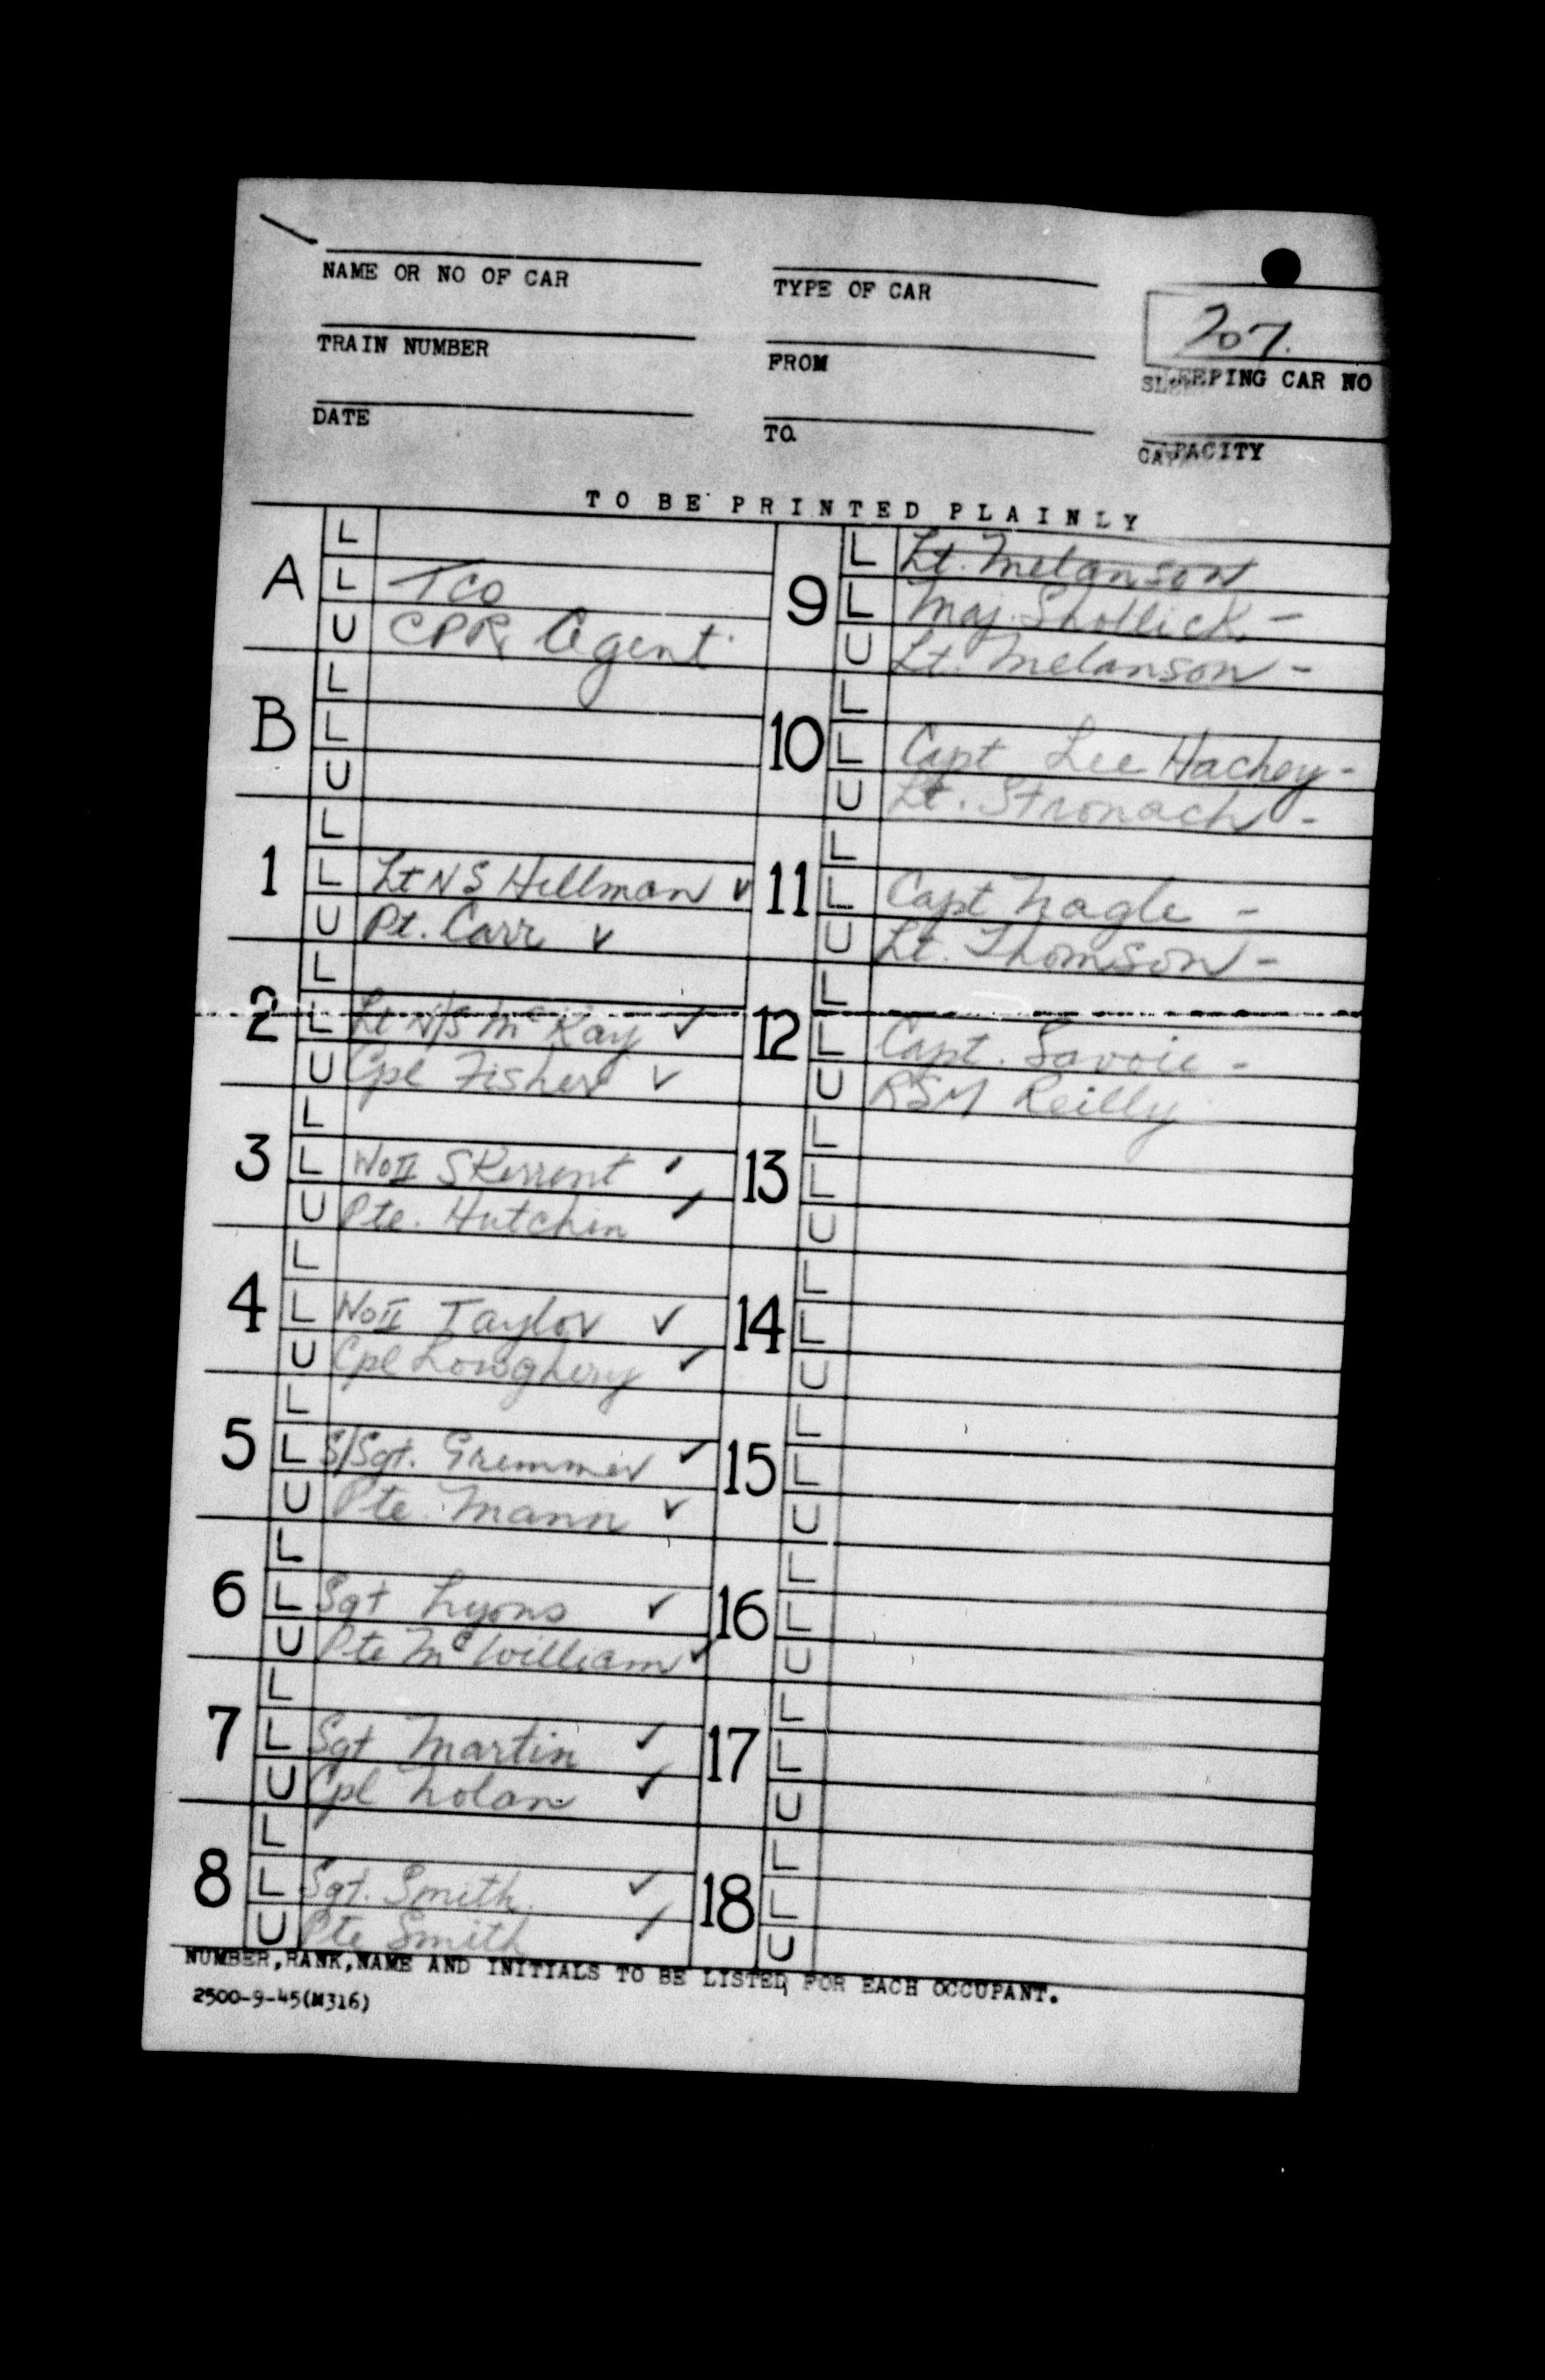 NAME OR NO OF CAR
TYPE OF CAR
207.
TRAIN NUMBER
FROM
SLEEPING CAR NO
DATE
TO
CAPACITY
TO BE PRINTED PLAINLY
A
L
L Tco
U CPR Agent
B
L
L
U
1
L
L Lt N S Hillman ✓
U Pt. Carr ✓
2
L
L Lt N/S McKay ✓
U Cpl Fisher ✓
3
L
L WoII Skerrent ✓
U Pte. Hutchin ✓
4
L
L WoII Taylor ✓
U Cpl Lowghery ✓
5
L
L S/Sgt. Gremmer ✓
U Pte. Mann ✓
6
L
L Sgt Lyons ✓
U Pte McWilliam ✓
7
L
L Sgt Martin ✓
U Cpl Nolan ✓
8
L
L Sgt. Smith ✓
U Pte Smith ✓
9
L Lt. Melanson
L Maj. -
U Lt. Melanson -
10
L
L Capt Lee Hachey -
U Lt. Stronach -
11
L
L Capt Nagle -
U Lt. Thomson -
12
L
L Capt. Savoie -
U RSM Reilly
13
L
L
U
14
L
L
U
15
L
L
U
16
L
L
U
17
L
L
U
18
L
L
U
NUMBER,RANK,NAME AND INITIALS TO BE LISTED FOR EACH OCCUPANT.
2500-9-45(M316)